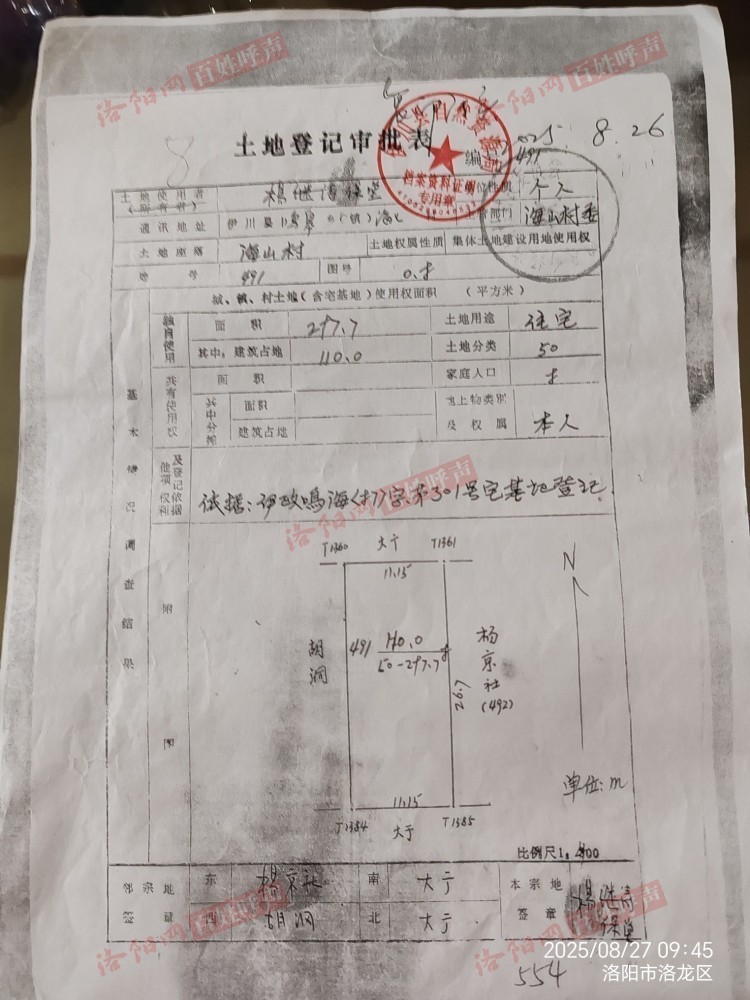 洛阳网 百姓呼声
洛阳网 百姓呼声
土地登记审批表
编号 491
2025. 8. 26
档案资料证明
专用章
土地使用者
(所有者)
个人
通讯地址 伊川县 (镇) 海山
海山村委
土地座落 海山村 土地权属性质 集体土地建设用地使用权
地号 491 图号
城、镇、村土地(含宅基地)使用权面积 (平方米)
独自使用 面积 297.7 土地用途 住宅
其中:建筑占地 110.0 土地分类 50
共有使用权 面积 家庭人口
其中分摊 面积 地上物类别
建筑占地 及权属 本人
基本情况调查结果
他项权利及登记依据
依据:伊政鸣海(村)字第301号宅基地登记.
洛阳网 百姓呼声
附图
T1360 大宁 T1361
11.15
N
胡洞
491 110.0
50-297.7
26.7
杨京社
(492)
单位:m
11.15
T1384 大宁 T1385
比例尺1:
邻宗地签章 东 杨京社 南 大宁 本宗地签章
西 胡洞 北 大宁
洛阳网 百姓呼声
洛阳网 百姓呼声
554
2025/08/27 09:45
洛阳市洛龙区